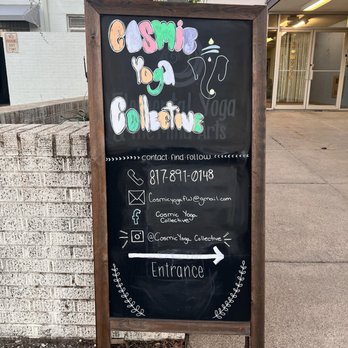 COSMIC
Yoga
Collective
contact · find · follow
817-891-0148
Cosmicyogaftw@gmail.com
Cosmic Yoga
Collective
@CosmicYoga Collective
Entrance